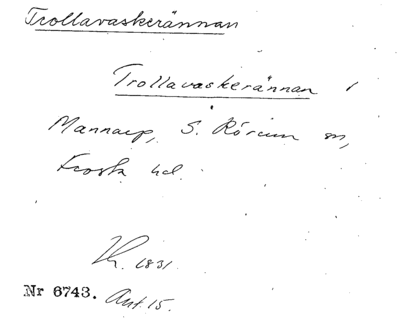 Trollavaskerännan
Trollavaskerännan i
Mannarp, S. Rörum sn,
Frosta hd.
1831.
Nr 6743. Ant. 15.